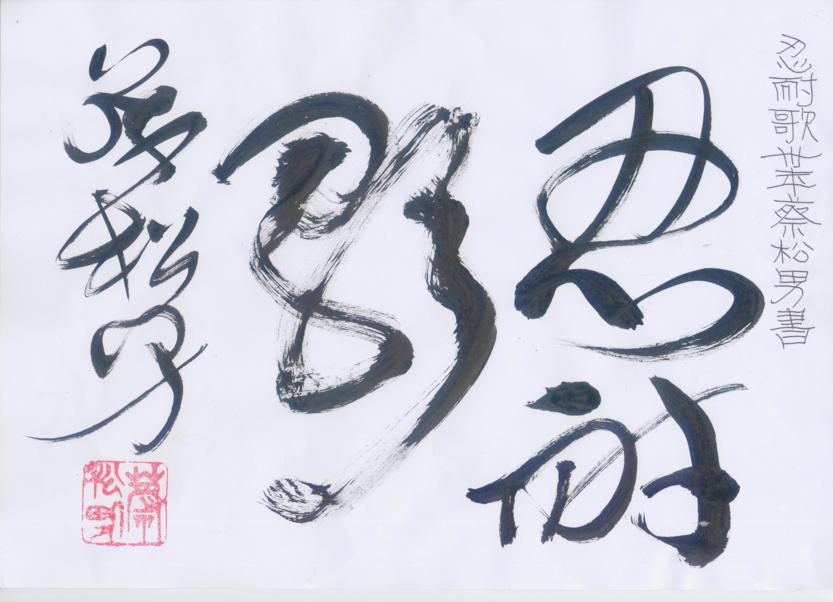 忍耐歌蔡松男書
忍耐
歌
蔡松男
蔡松男